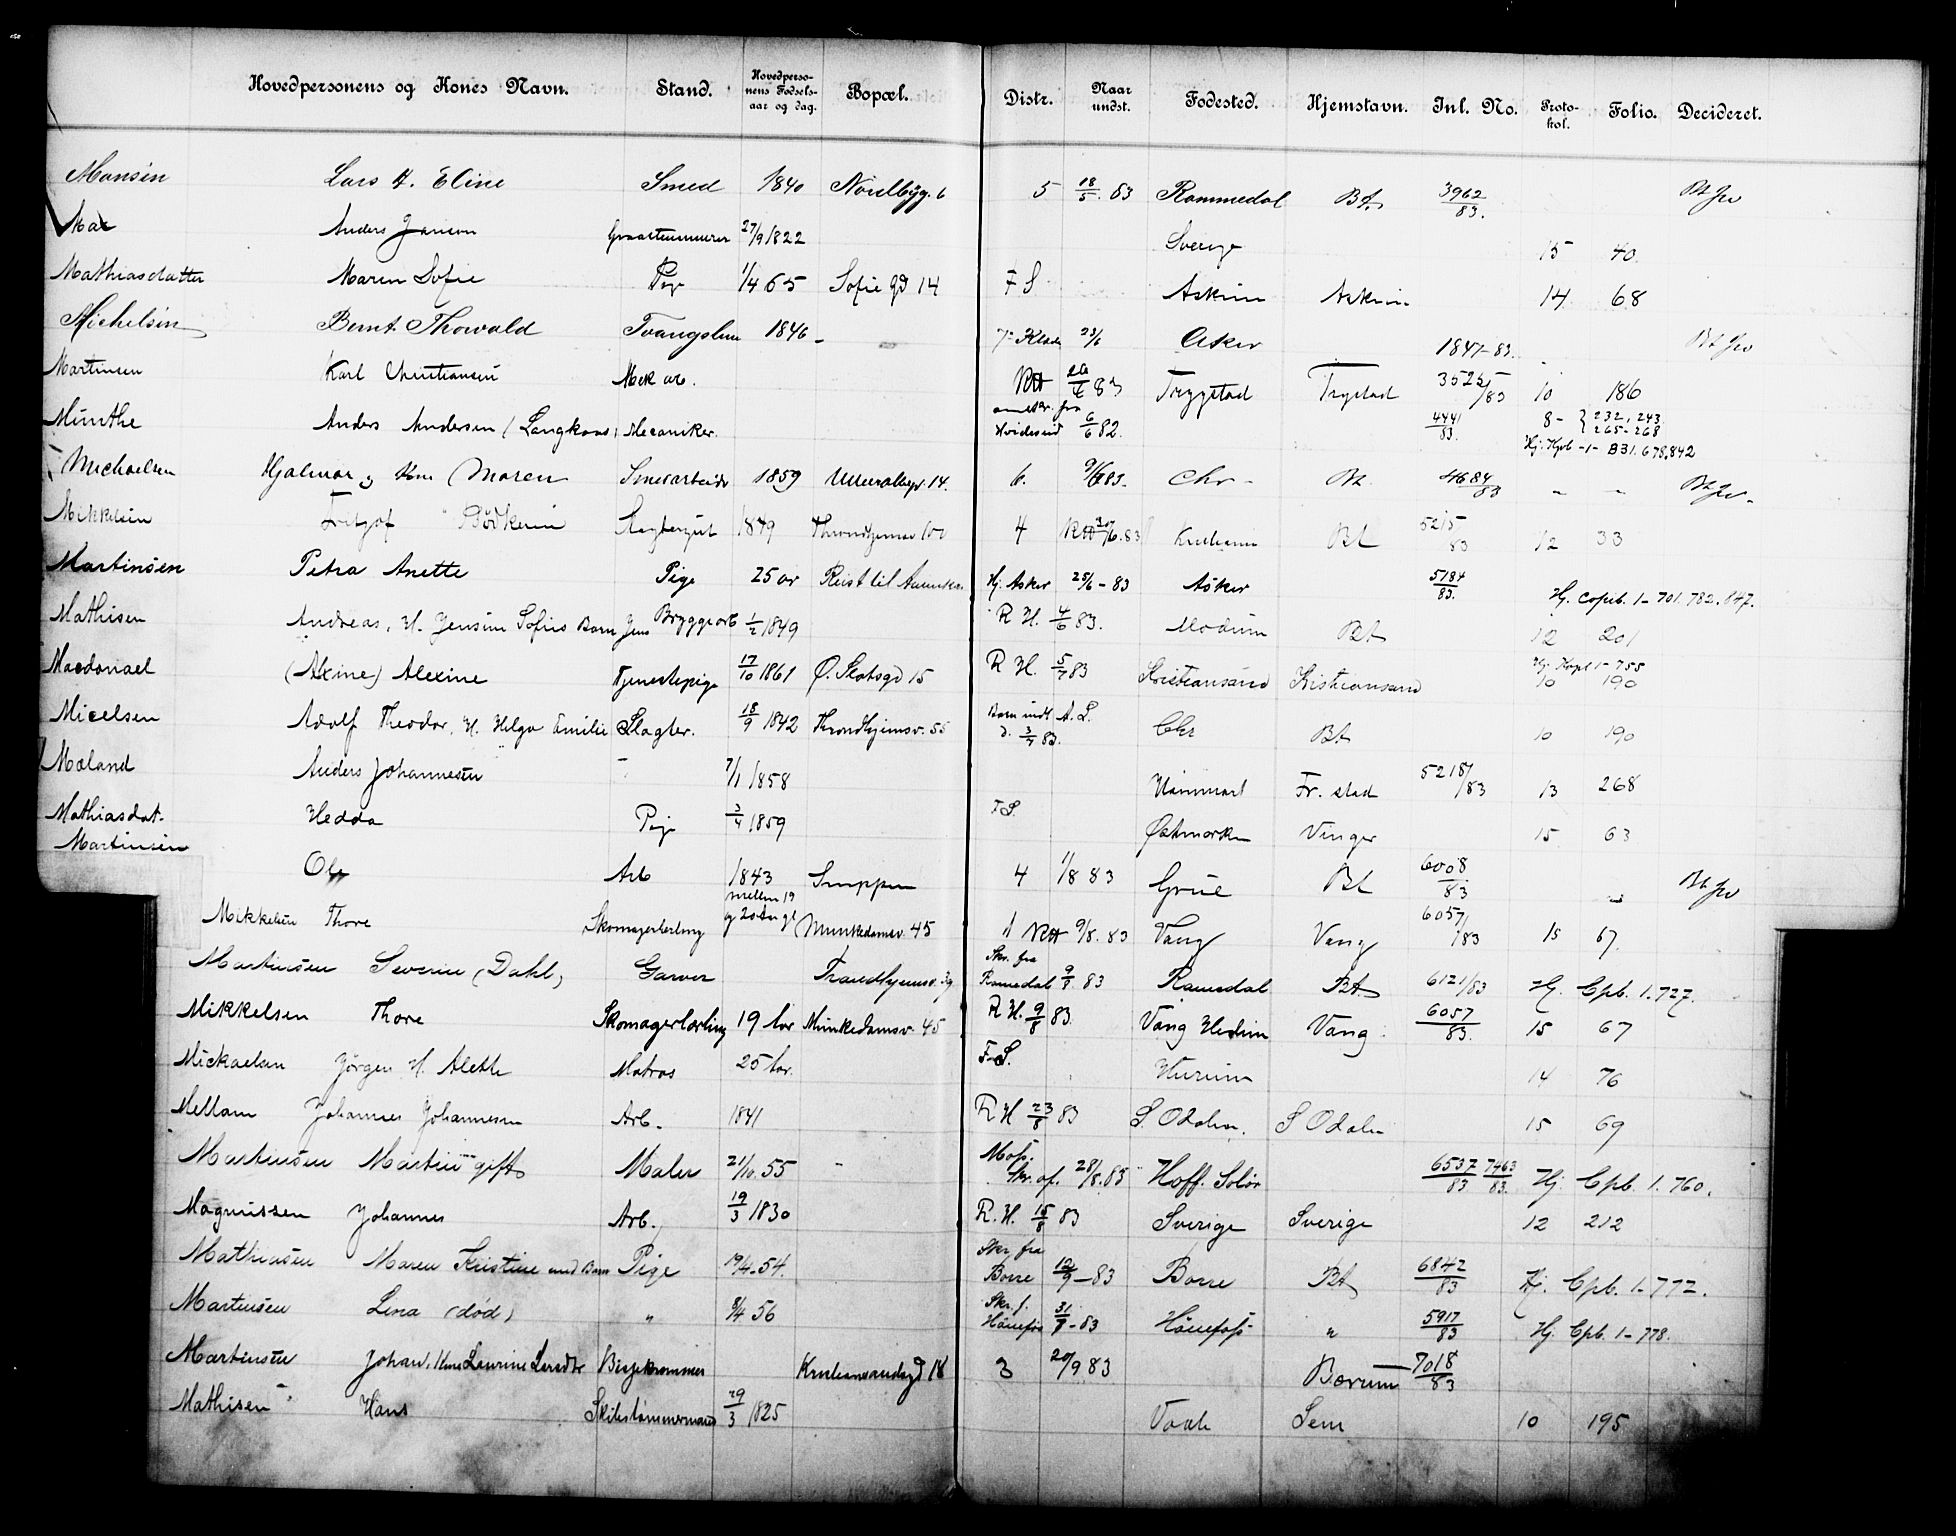 Hovedpersonens og Kones Navn. Stand. Hovedpersonens Fødselsaar og dag. Bopæl. Distr. Naar undst. Fødested. Hjemstavn. Inl. No. Protokol. Folio. Decideret.
Monsen Lars H. Eline Smed 1840 Nordbyg. 6 5 18/5. 83 Rommedal Bt. 3962/83.
Anders Jansen 27/9 1822 Sverge 15 40.
Mathiasdatter Maren Sofie Pige 1/4 65 Sofie gd 14 F S Askim Askim 14 68
Michelsen Bernt Thorvald 1846 - 23/6 Asker 1847-83.
Martinsen Karl Christiansen Mek arb. RH 83 Trygstad Trygstad 3525/83 10 186
Munthe Anders Andersen (Langkaas) Mecaniker. Hvideseid 6/6 82. 4441/83. 8- {232, 243 265-268
Hj. Kpb -1- 831. 678, 842
Michaelsen Hjalmar og Kone Maren 1859 Ullevaalsv. 14. 6. 9/6 83. Chr - Bt. 4684/83 - -
Mikkelsen 1849 Throndhjemsv 100 4 RH 6.83 Bt 5215/83 12 33
Martinsen Petra Anette Pige 25 aar Reist til Hj. Asker 25/6 - 83 Asker 5184/83. Hj. Copib. 1-701. 782. 847.
Mathisen Andreas, H. Jensine Sofies Barn Jens Bryggearb 1/2 1849 R H. 4/6 83. Modum Bt 12 201
Macdonael (Axine) Alexine Tjenestepige 17/10 1861 Ø. Slotsgd 15 R H. 5/7 83 Kristiansand Kristiansand Hj. Kopb 1-755 10 190
Micelsen Adolf Theodor, H. Helga Emilie Slagter. 18/9 1842 Throndhjemsv. 55 Barn indl A. S. d. 3/7 83. Chr Bt 10 190
Moland Anders Johannesen 7/1 1858 Fr. stad 5218/83 13 268
Mathiasdat. Hedda Pige 3/4 1859 F S. Østmarken Vinger 15 63
Martinsen Ole Arb 1843 4 1/8 83 Grue Bt 6008/83
Mikkelsen Thore Skomagerlærling mellem 19 og 20 Aar gl Munkedamsv. 45 1 RH 9/8. 83 Vang Vang 6057/83 15 67.
Martinsen Severin (Dahl) Garver Trondhjemsv. 39 Skr. fra Ramedal 9/8 83 Ramedal Bt. 6121/83 Hj. Cpb. 1. 727.
Mikkelsen Thore Skomagerlærling 19 Aar Munkedamsv. 45 R H. 9/8 83. Vang Hedm Vang 6057/83. 15 67
Mickaelsen Jörgen H. Alette Matros 25 Aar. F S. Hurum 14 76
Mellam Johannes Johannesen Arb. 1841 R H 23/8 83 S. Odalen. S Odalen 15 69
Martinsen Martin gift Maler 21/10. 55 - Moss. Skr. af. 28/8. 83 Hoff. Solör 6537/83 7463/83. Hj. Cpb. 1. 760.
Magnussen Johannes Arb. 19/3 1830 R. H. 15/8 83 Sverige Sverige 12 212
Mathiasen Maren Kristine med Barn Pige 19/4. 54. Skr. fra Borre 12/9 - 83 Borre Bt 6842/83 Hj. Cpb. 1-772.
Martinsen Lina (død) " 8/4 56 Skr. f. Hönefos 83 Hönefoss " 5917/83 Hj. Cpb. 1-778.
Martinsen Johan, Hus Laurine Larsdtr Kristiansandsgd 18 3 20/9 83 Bærum 7018/83
Mathisen Hans Skibstømmermand 29/3 1825 Vaale Sem 10 195